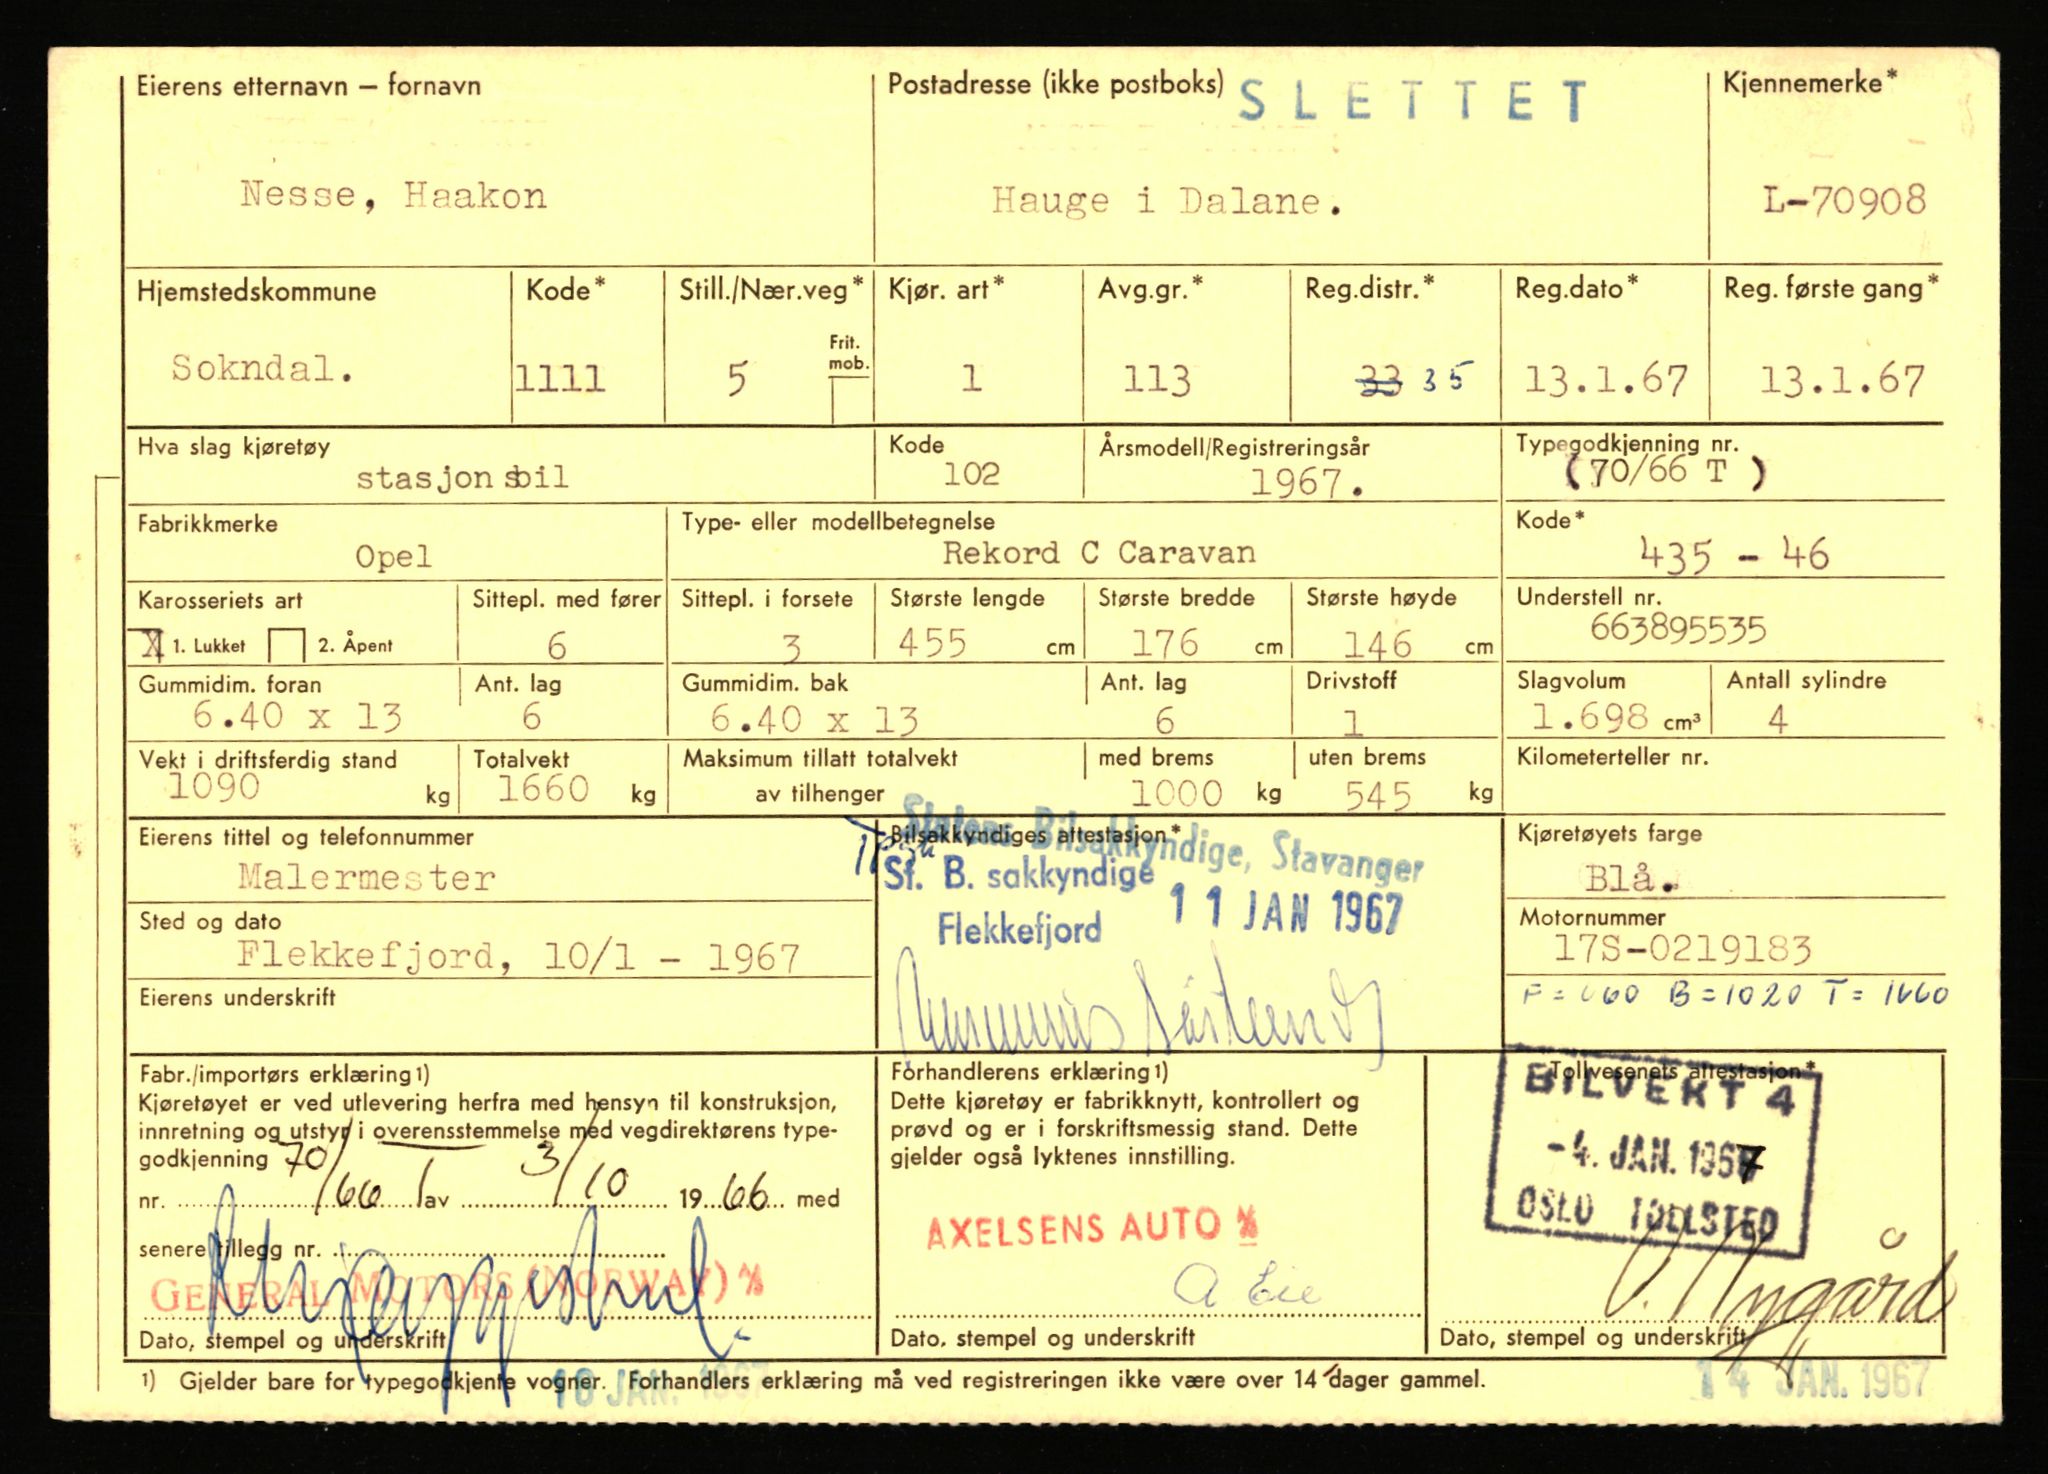 Eierens etternavn – fornavn
Postadresse (ikke postboks) SLETTET
Kjennemerke*
Nesse, Haakon
Hauge i Dalane.
L-70908
Hjemstedskommune Kode* Still./Nær.veg* Kjør. art* Avg.gr.* Reg.distr.* Reg.dato* Reg. første gang*
Frit. mob.
Sokndal. 1111 5 1 113 33 35 13.1.67 13.1.67
Hva slag kjøretøy Kode Årsmodell/Registreringsår Typegodkjenning nr.
stasjonsbil 102 1967. (70/66 T )
Fabrikkmerke Type- eller modellbetegnelse Kode*
Opel Rekord C Caravan 435 - 46
Karosseriets art Sittepl. med fører Sittepl. i forsete Største lengde Største bredde Største høyde Understell nr.
X 1. Lukket 2. Åpent 6 3 455 cm 176 cm 146 cm 663895535
Gummidim. foran Ant. lag Gummidim. bak Ant. lag Drivstoff Slagvolum Antall sylindre
6.40 x 13 6 6.40 x 13 6 1 1.698 cm³ 4
Vekt i driftsferdig stand Totalvekt Maksimum tillatt totalvekt med brems uten brems Kilometerteller nr.
1090 kg 1660 kg av tilhenger 1000 kg 545 kg
Eierens tittel og telefonnummer
Malermester
Sted og dato
Flekkefjord, 10/1 - 1967
Eierens underskrift
Bilsakkyndiges attestasjon*
Statens Bilsakkyndige, Stavanger
St. B. sakkyndige
11 JAN 1967
Flekkefjord
Kjøretøyets farge
Blå.
Motornummer
17S-0219183
B=1020 T=1660
Fabr./importørs erklæring1)
Kjøretøyet er ved utlevering herfra med hensyn til konstruksjon,
innretning og utstyr i overensstemmelse med vegdirektørens type-
godkjenning 70/
nr. /66 av 3/10 1966 med
senere tillegg nr.
GENERAL MOTORS (NORWAY) A/S
Dato, stempel og underskrift
10 JAN. 1967
Forhandlerens erklæring1)
Dette kjøretøy er fabrikknytt, kontrollert og
prøvd og er i forskriftsmessig stand. Dette
gjelder også lyktenes innstilling.
AXELSENS AUTO A/S
A Eie
Dato, stempel og underskrift
Tollvesenets attestasjon*
BILVEKT 4
-4. JAN. 1967
OSLO TOLLSTED
Nygård
Dato, stempel og underskrift
14 JAN. 1967
1) Gjelder bare for typegodkjente vogner. Forhandlers erklæring må ved registreringen ikke være over 14 dager gammel.